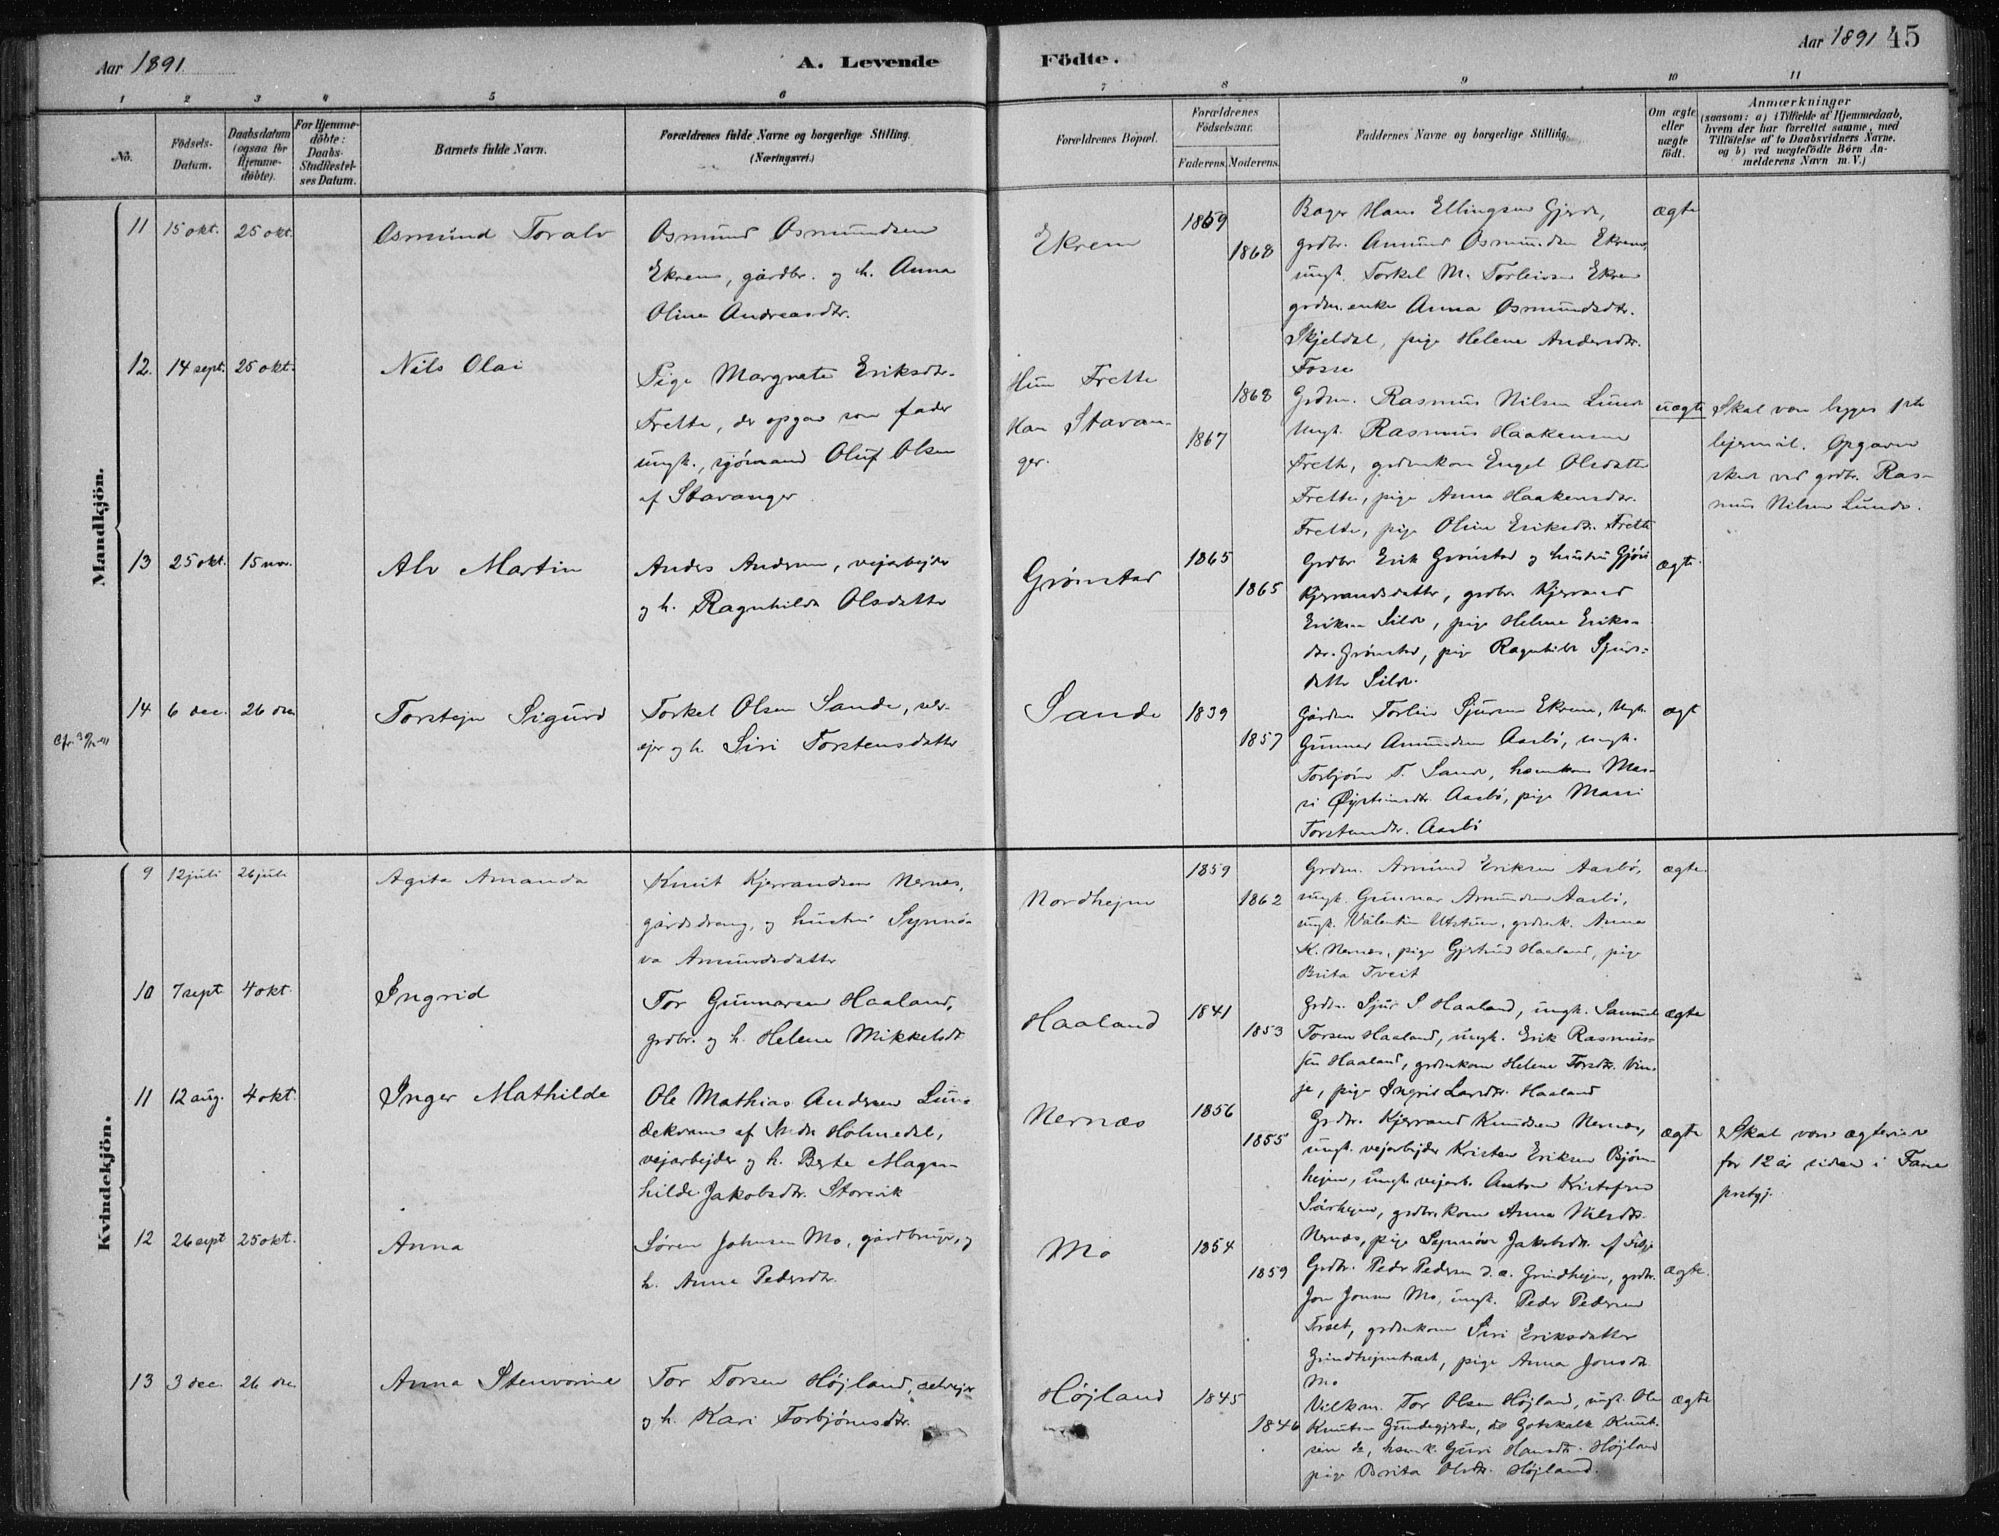 Aar 1891.
A. Levende
Födte.
Aar 1891
45
1 2 3 4 5 6
7 8 9 10 11
No.
Födsels-
Datum.
Daabsdatum
(ogsaa for
Hjemme-
döbte).
For Hjemme-
döbte:
Daabs-
Stadfæstel-
ses Datum.
Barnets fulde Navn.
Forældrenes fulde Navne og borgerlige Stilling.
(Næringsvei.)
Forældrenes Bopæl.
Forældrenes
Födselsaar.
Faderens. Moderens.
Faddernes Navne og borgerlige Stilling.
Om ægte
eller
uægte
födt.
Anmærkninger
(saasom: a) i Tilfælde af Hjemmedaab,
hvem der har forrettet samme, med
Tilföielse af to Daabsvidners Navne,
og b) ved uægtefödte Börn An-
melderens Navn m. V.)
Mandkjön.
11 15 okt. 25 okt.
Osmund Toralv
Osmund Osmundsen
Ekrem, gårdbr. og h. Anna
Oline Andreasdtr.
Ekrem
1859
1868
Bager Hans Ellingsen Gjerde,
grdbr. Amund Osmundsen Ekrem,
ungk. Torkel M. Torleivsen Ekrem
grdm.enke Anna Osmundsdtr.
Skjeldal, pige Helene Andersdtr.
Fosse
ægte
12. 14 sept. 25 okt.
Nils Olai
Pige Margrete Eriksdtr.
Frette, der opgav som fader
ungk., sjømand Oluf Olsen
af Stavanger
Hun Frette
Han Stavan-
ger.
1868
1867
Grdm. Rasmus Nilsen Lunde
Ungk. Rasmus Haakensen
Frette, grdmkone Engel Olsdatter
Frette, pige Anna Haakensdtr.
Frette, pige Oline Eriksdtr. Frette
uægte
Skal være begges 1ste
lejermål. Opgaven
skede ved grdbr. Ras-
mus Nilsen Lunde.
13 25 okt. 15 nov.
Alv Martin
Anders Andersen, vejarbejder
og h. Ragnhilda Olsdatter
Grønstad
1865
1865
Grdbr. Erik Grønstad og hustru Gjøri
Kjerrandsdatter, grdbr. Kjerrand
Eriksen Silde, pige Helene Eriks-
dtr. Grønstad, pige Ragnhilde Sjurs-
datter Silde.
ægte.
14 6 dec. 26 dec
Torstejn Sigurd
Torkel Olsen Sande, selv-
ejer og h. Siri Torstensdatter
Sande
1839
1857
Gårdm. Torleiv Sjursen Ekrem, Ungk.
Gunnar Amundsen Aasbø, ungk.
Torbjørn T. Sande, husmkone Mar-
si Øysteinsdtr. Aasbø, pige Marsi
Torstensdtr. Aasbø
ægt
Kvindekjön.
9 12 juli 26 juli
Agita Amanda
Knut Kjerrandsen Nernæs,
gårdsdreng, og hustru Synnø-
va Amundsdatter
Nordhejm
1859
1862
Grdm. Amund Eriksen Aasbø,
ungk. Gunnar Amundsen Aasbø,
ungk. Valentin Utstuen, grdmk. Anna
K. Nernæs, pige Gjertrud Haaland, pige
Brita Tveit
ægte.
10 7 sept 4 okt.
Ingrid
Tor Gunnarsen Haaland,
grdbr. og h. Helene Mikkelsdtr
Haaland
1841
1853
Grdm. Sjur S Haaland, ungk. Samuel
Torsen Haaland, ungk. Erik Rasmus-
sen Haaland, grdmkone Helene Torsdtr. Vin-
je, pige Ingrid Larsdtr. Haaland
ægte
11 12 aug. 4 okt.
Inger Mathilde
Ole Mathias Andersen Lun-
dekvam af Indre Holmedal,
vejarbejder og h. Berte Magn-
hilde Jakobsdtr. Storevik
Nernæs
1856
1855
Grdbr. Kjerrand Knudsen Nernæs,
ungk. vejarbejder Kristen Eriksen Bjørn-
hejm, ungk. vejarb. Anton Kristofersen
Sørhejm, grdbrkone Anna Nilsdtr.
Nernæs, pige Synnøve Jakobsdtr. af
ægte
Skal være ægteviet
for 12 år siden i Fane
prstgj.
12 26 sept 25 okt.
Anna
Søren Johnsen Mo, gårdbruger, og
h. Anne Pedersdtr.
Mo
1854
1859
Grdbr. Peder Pedersen d.æ. Grindhejm, grdbr.
Jon Jonsen Mo, ungk. Peder Pedersen
Træet, grdmkone Siri Eriksdatter
Grindhejmtræet, pige Anna Jonsdtr.
Mo
ægte.
13 3 dec. 26 dec
Anna Stenvorine
Tor Torsen Højland, selvejer
og h. Kari Torbjørnsdtr.
Højland
1845
1846
Vilkm. Tor Olsen Højland, ungk. Ole
Knutsen Gundegjerde, do Gotskalk Knut-
sen do, husmk. Guri Hansdtr. Højland
pige Brita Olsdtr. Højland.
ægte